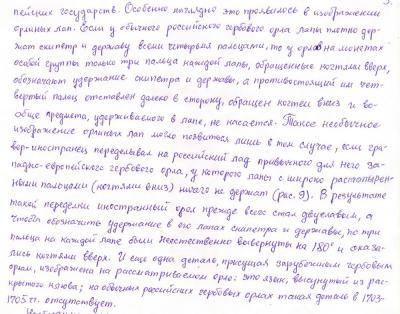 пейских государств. Особенно наглядно это проявилось в изображении
орлиных лап. Если у обычного российского гербового орла лапы плотно дер-
жат скипетр и державу всеми четырьмя пальцами, то у орлов на монетах
особой группы только три пальца каждой лапы, обращенные когтями вверх,
обозначают удержание скипетра и державы, а противостоящий им чет-
вертый палец отставлен далеко в сторону, обращен когтем вниз и во-
обще предмета, удерживаемого в лапе, не касается. Такое необычное
изображение орлиных лап могло появиться лишь в том случае, если гра-
вер-иностранец переделывал на российский лад привычного для него за-
падно-европейского гербового орла, у которого лапы с широко растопырен-
ными пальцами (когтями вниз) ничего не держат (рис. 9). В результате
такой переделки иностранный орел прежде всего стал двуглавым, а
чтобы обозначить удержание в его лапах скипетра и державы, по три
пальца на каждой лапе были неестественно вывернуты на 180° и оказа-
лись когтями вверх. И еще одна деталь, присущая зарубежным гербовым
орлам, изображена на рассматриваемом орле: это язык, высунутый из рас-
крытого клюва; на обычных российских гербовых орлах такая деталь в 1703-
1705 гг. отсутствует.